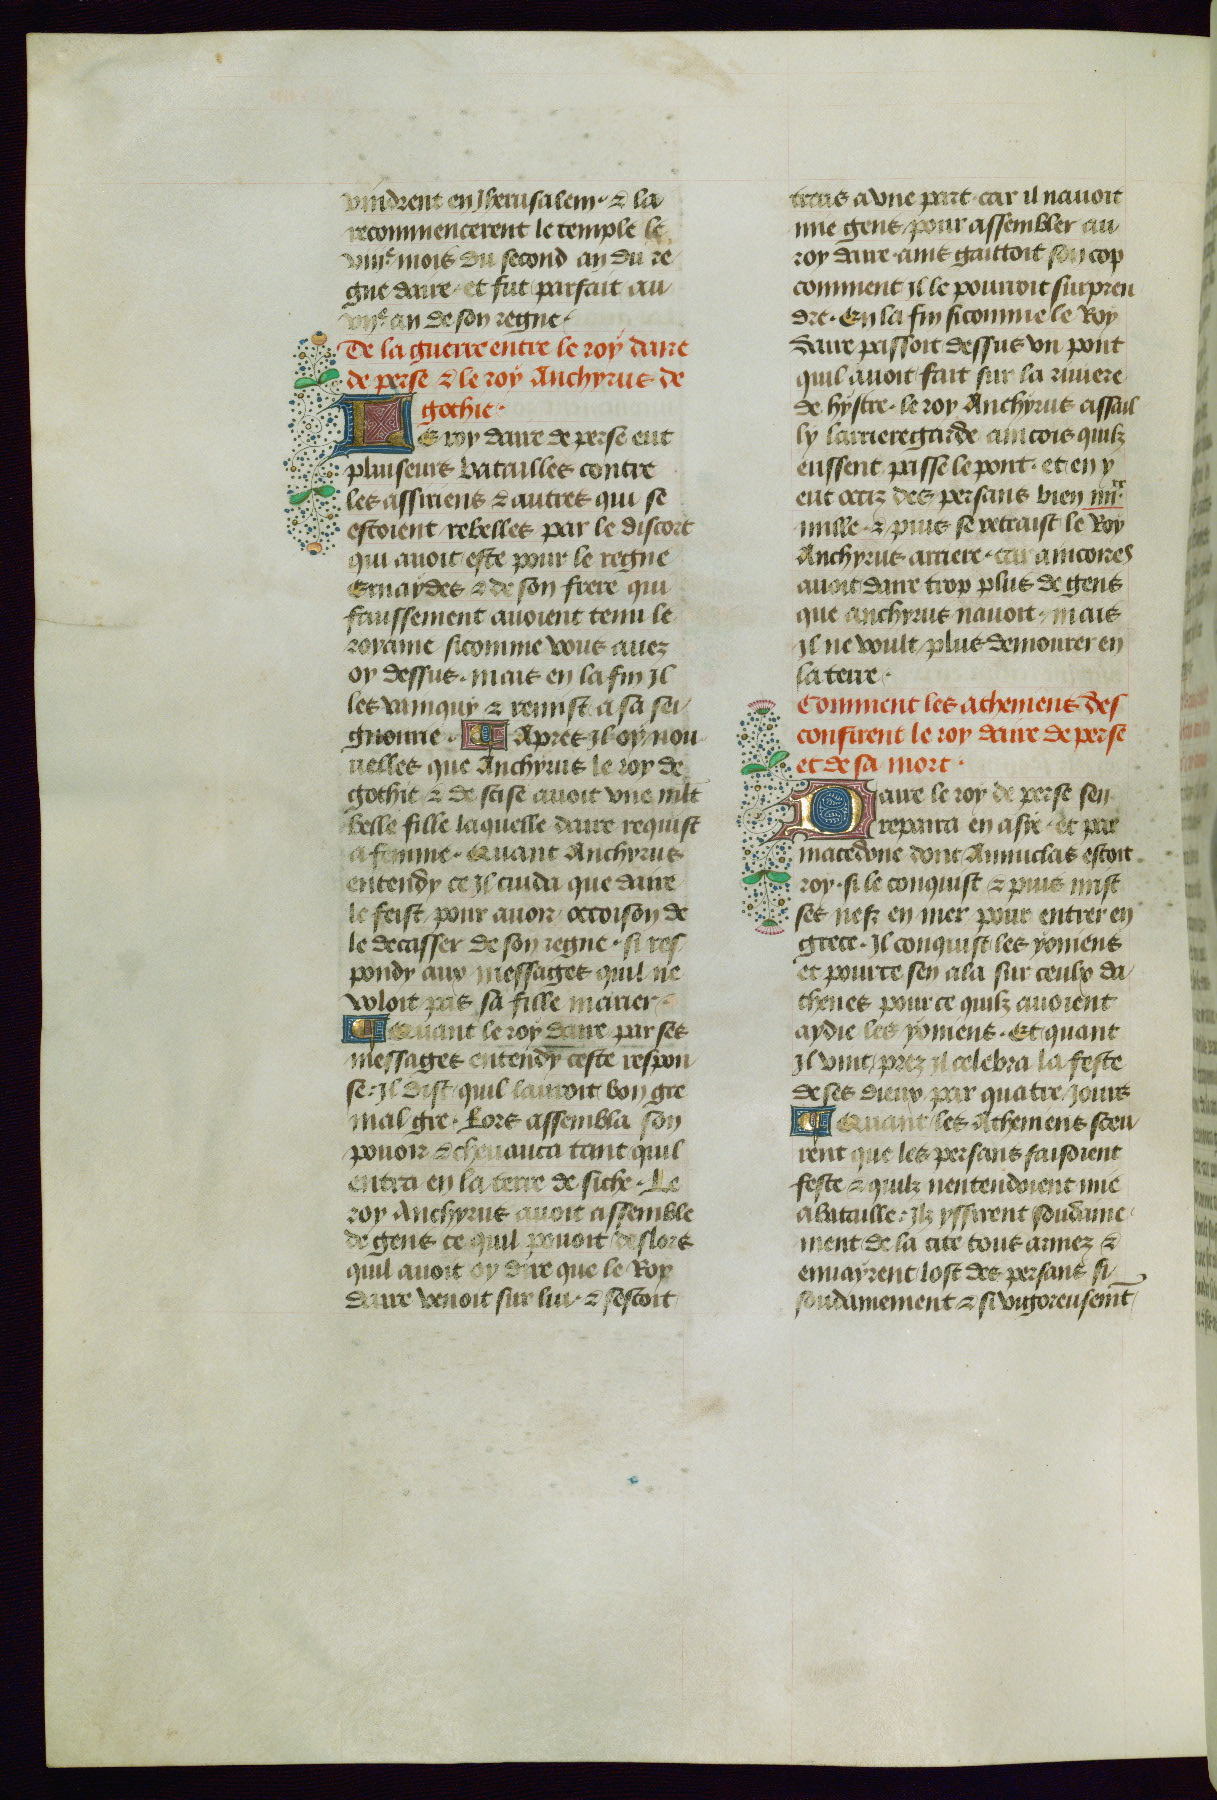 vindrent en Jherusalem · & la
recommencerent le temple le
viiie mois du second an du re
gne daire · et fut parfait au
viie an de son regne ·
De la guerre entre le roy daire
de perse & le roy Anchyrus de
gothie ·
Le roy daire de perse eut
pluiseurs batailles contre
les assiriens & autres qui se
estoient rebelles par le discort
qui auoit este pour le regne
Ernaydes & de son frere qui
faussement auoient tenu le
royame sicomme vous auez
oy dessus · mais en la fin Jl
les vainquy & remist a sa sei
gnourie · Apres Jl oy nou
uelles que Anchyrus le roy de
gothie & de scise auoit vne mlt
belle fille laquelle daire requist
a femme · Quant Anchyrus
entendy ce Jl cuida que daire
le feist pour auoir occoison de
le decasser de son regne · si res
pondy aux messages quil ne
voloit pas sa fille marier ·
Quant le roy daire par ses
messages entendy ceste respon
se : Jl dist quil lauroit bon gre
mal gre · Lors assembla son
pouoir & cheuauca tant quil
entra en la terre de siche · Le
roy Anchyrus auoit assemble
de gens ce quil pouoit deslors
quil auoit oy dire que le Roy
daire venoit sur lui · & sestoit
traus a vne part · car il nauoit
mie gens pour assembler au
roy daire · ains gaittoit son cop
comment Jl le pourroit surpren
dre · En la fin sicomme le Roy
daire passoit dessus vn pont
quil auoit fait sur la riuiere
de hystre · le roy Anchyrus assail
ly larrieregarde aincois quilz
eussent passe le pont · et en y
eut occiz des persans bien iiiixx
mille · & puis se retraist le Roy
Anchyrus arriere · car aincoires
auoit daire trop plus de gens
que anchyrus nauoit · mais
Jl ne voult plus demourer en
la terre ·
Comment les atheniens des
confirent le roy daire de perse
et de sa mort ·
Daire le roy de perse sen
repaira en asie · et par
macedone dont Aminclas estoit
roy · si le conquist & puis mist
ses nefz en mer pour entrer en
grece · Jl conquist les yoniens
et pource sen ala sur ceulx da
thenes pour ce quilz auoient
aydie les yoniens · Et quant
Jl vint prez Jl celebra la feste
de ses dieux par quatre Jours
Quant les Atheniens sceu
rent que les persans faisoient
feste & quilz nentendoient mie
a bataille : Jlz yssirent soudaine
ment de la cite tous armez &
enuayrent lost des persans si
soudainement & si vigoreusemt